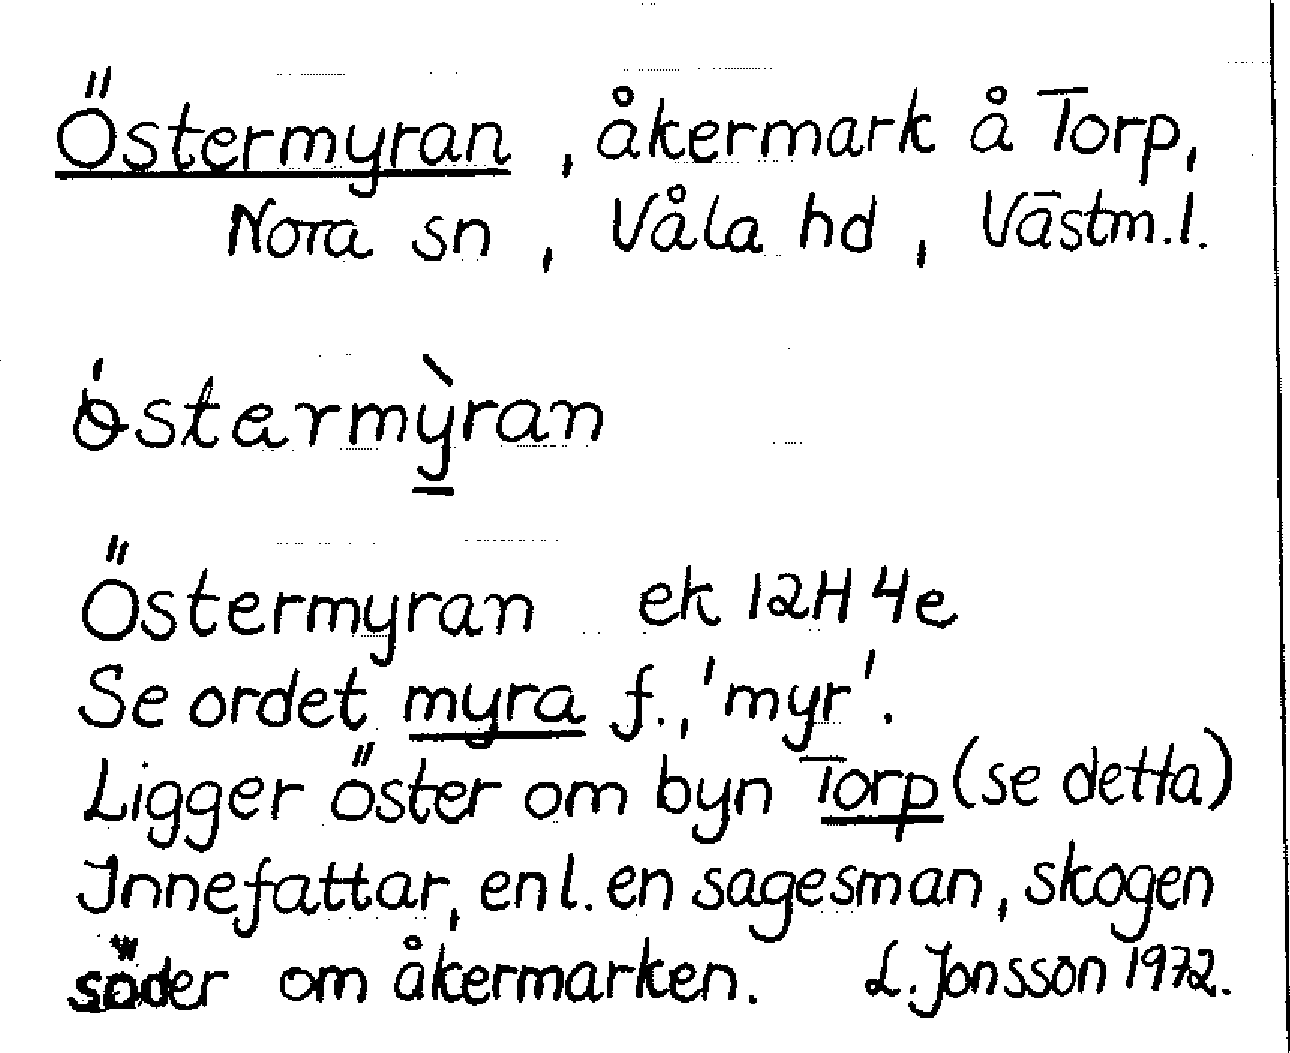 Östermyran, åkermark å Torp,
Nora sn, Våla hd, Västm.l.
ǿstermỳ̠ran
Östermyran ek 12H 4e
Se ordet myra f., 'myr'.
Ligger öster om byn Torp (se detta)
Innefattar, enl. en sagesman, skogen
söder om åkermarken. L. Jonsson 1972.